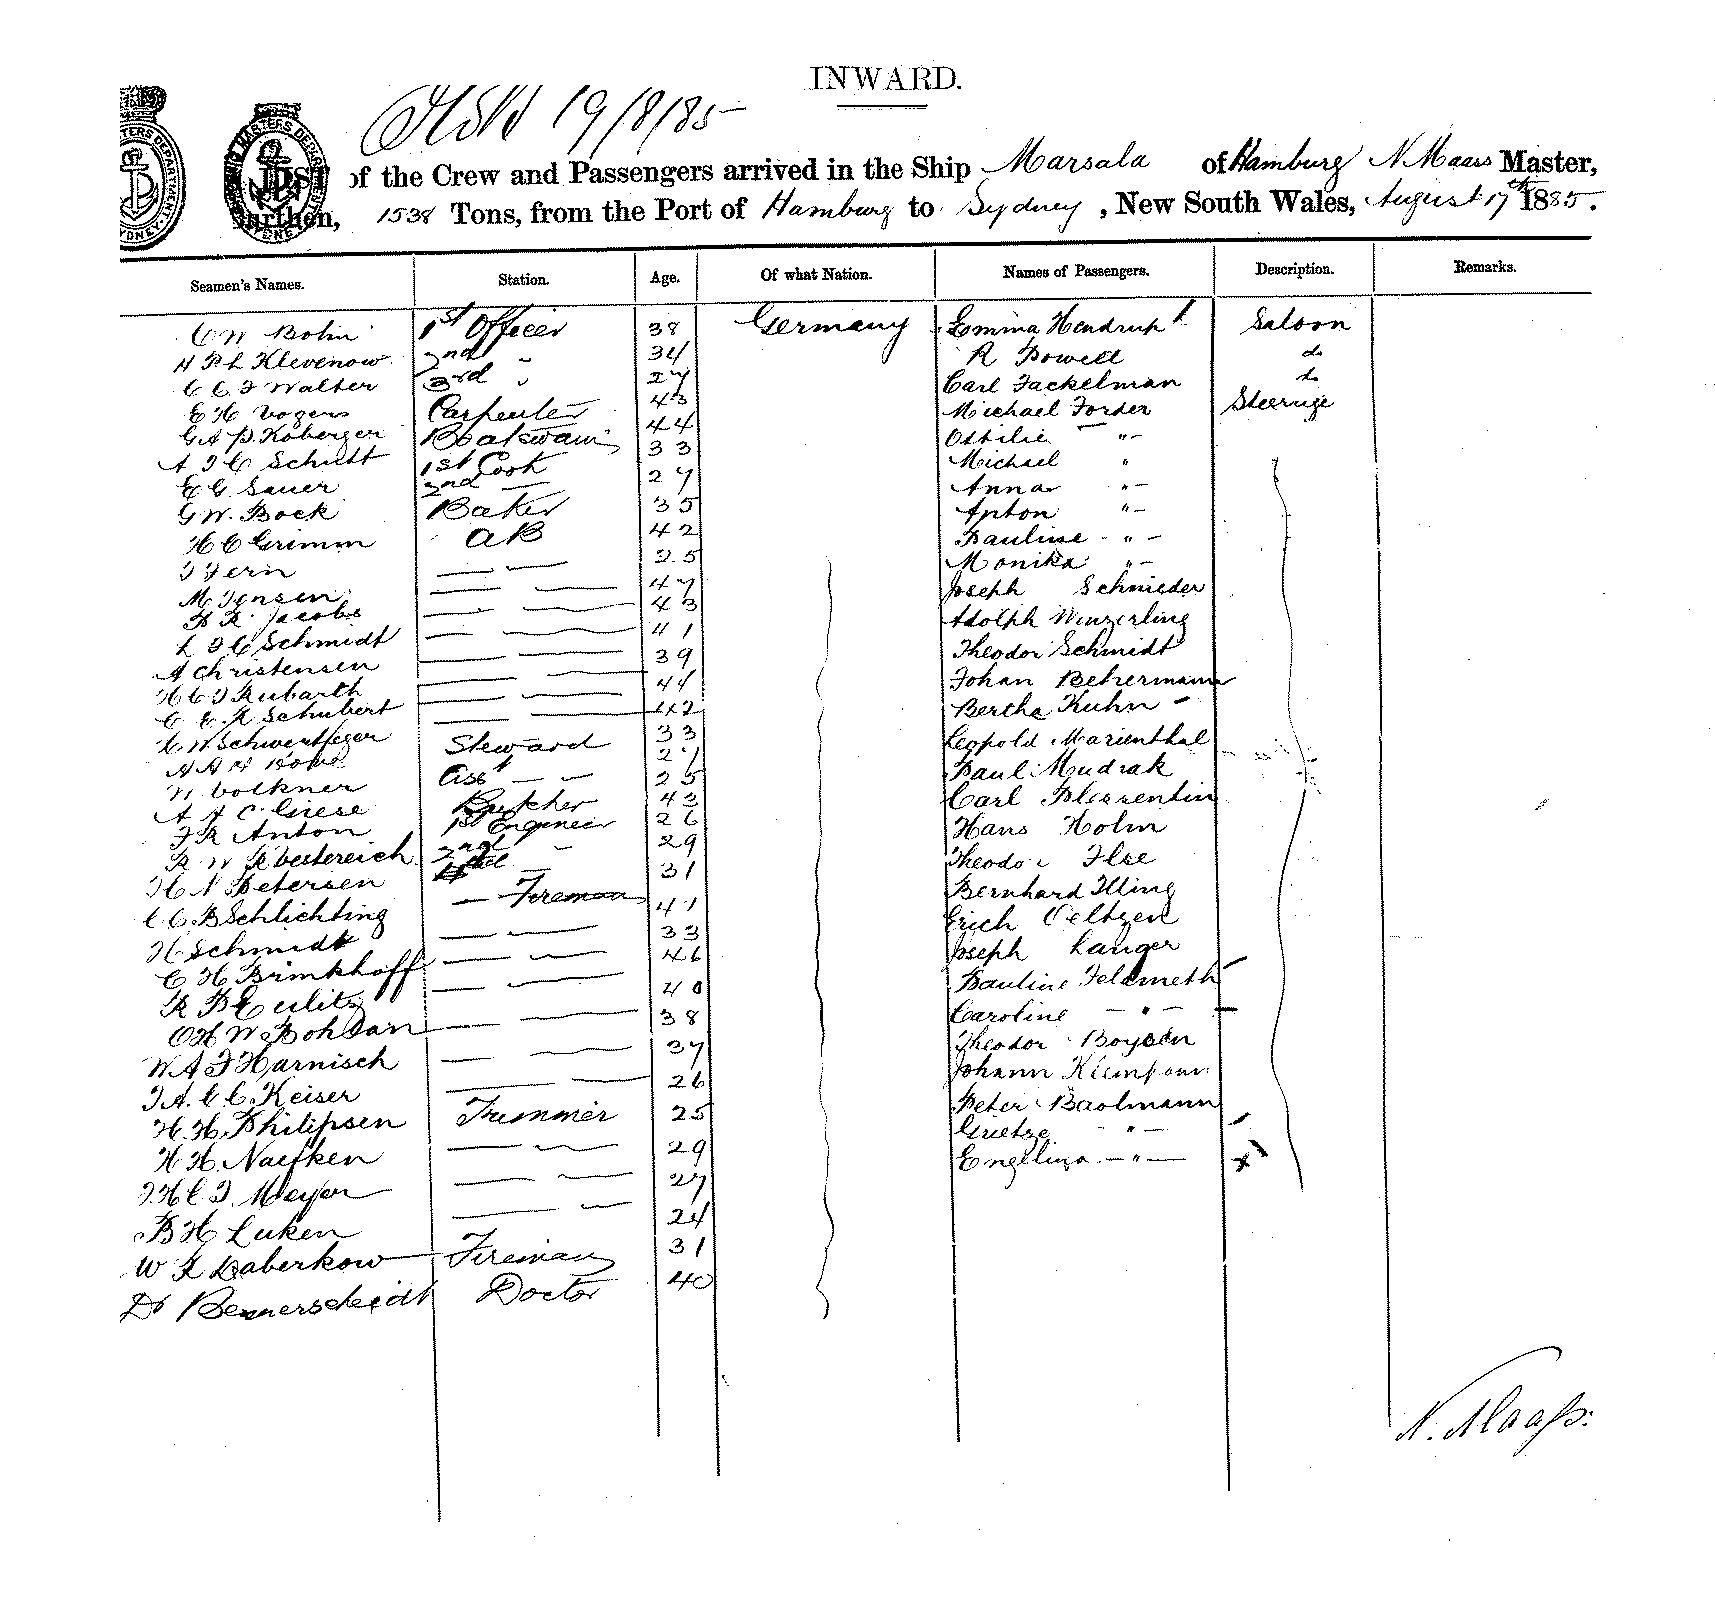 INWARD.
19/8/85
LIST of the Crew and Passengers arrived in the Ship Marsala of Hamburg N Maass Master,
Burthen, 1538 Tons, from the Port of Hamburg to Sydney, New South Wales, August 17th 1885.
Seamen's Names. Station. Age. Of what Nation. Names of Passengers. Description. Remarks.
C W Bohn 1st Officer 38 Germany Emma Hendrup Saloon
H P L Klevenow 2nd " 34 R Powell do
C C F Walter 3rd " 27 Carl Fackelman do
E H Vogers Carpenter 43 Michael Forder Steerage
G A P. Koberger Boatswain 44 Ottilie "
A F C Schutt 1st Cook 33 Michael "
E G Sauer 2nd — 27 Anna "
G W. Bock Baker 35 Anton "
H C Grimm AB 42 Pauline "
J Fern — — 25 Monika "
M Jensen — — 47 Joseph Schnieder
H R Jacobs — — 43 Adolph Winzerling
L F C Schmidt — — 41 Theodor Schmidt
A Christensen — — 39 Johan Behrermann
H C F Rubarth — — 44 Bertha Kuhn
C E R Schubert — — 42 Leopold Marienthal
C W Schwertfeger Steward 33 Paul Mudrak
A A H 27 Carl
W Volkner Asst — 25 Hans Holm
A A C Giese Butcher 43 Theodor Ilse
F R Anton 1st Engineer 26 Bernhard Illing
R W 2nd — 29 Erich Oeltzen
H N Petersen — 31 Joseph Langer
C C B Schlichting — Fireman 41 Pauline
H Schmidt — — 33 Caroline "
C H Brinkhoff — — 46 Theodor Boysen
R B Eulitz — — 40 Johann
O H W Bohdan — — 38 Peter Baolmann
W A F Harnisch — — 37 "
J A. C C. Keiser — — 26 Engelina "
H. H. Philipsen Trimmer 25
H H. Naefken — — 29
J H C F Meyer — — 27
B H Luken — — 24
W F Haberkow Fireman 31
Dr Bennerscheidt Doctor 40
N. Maass.